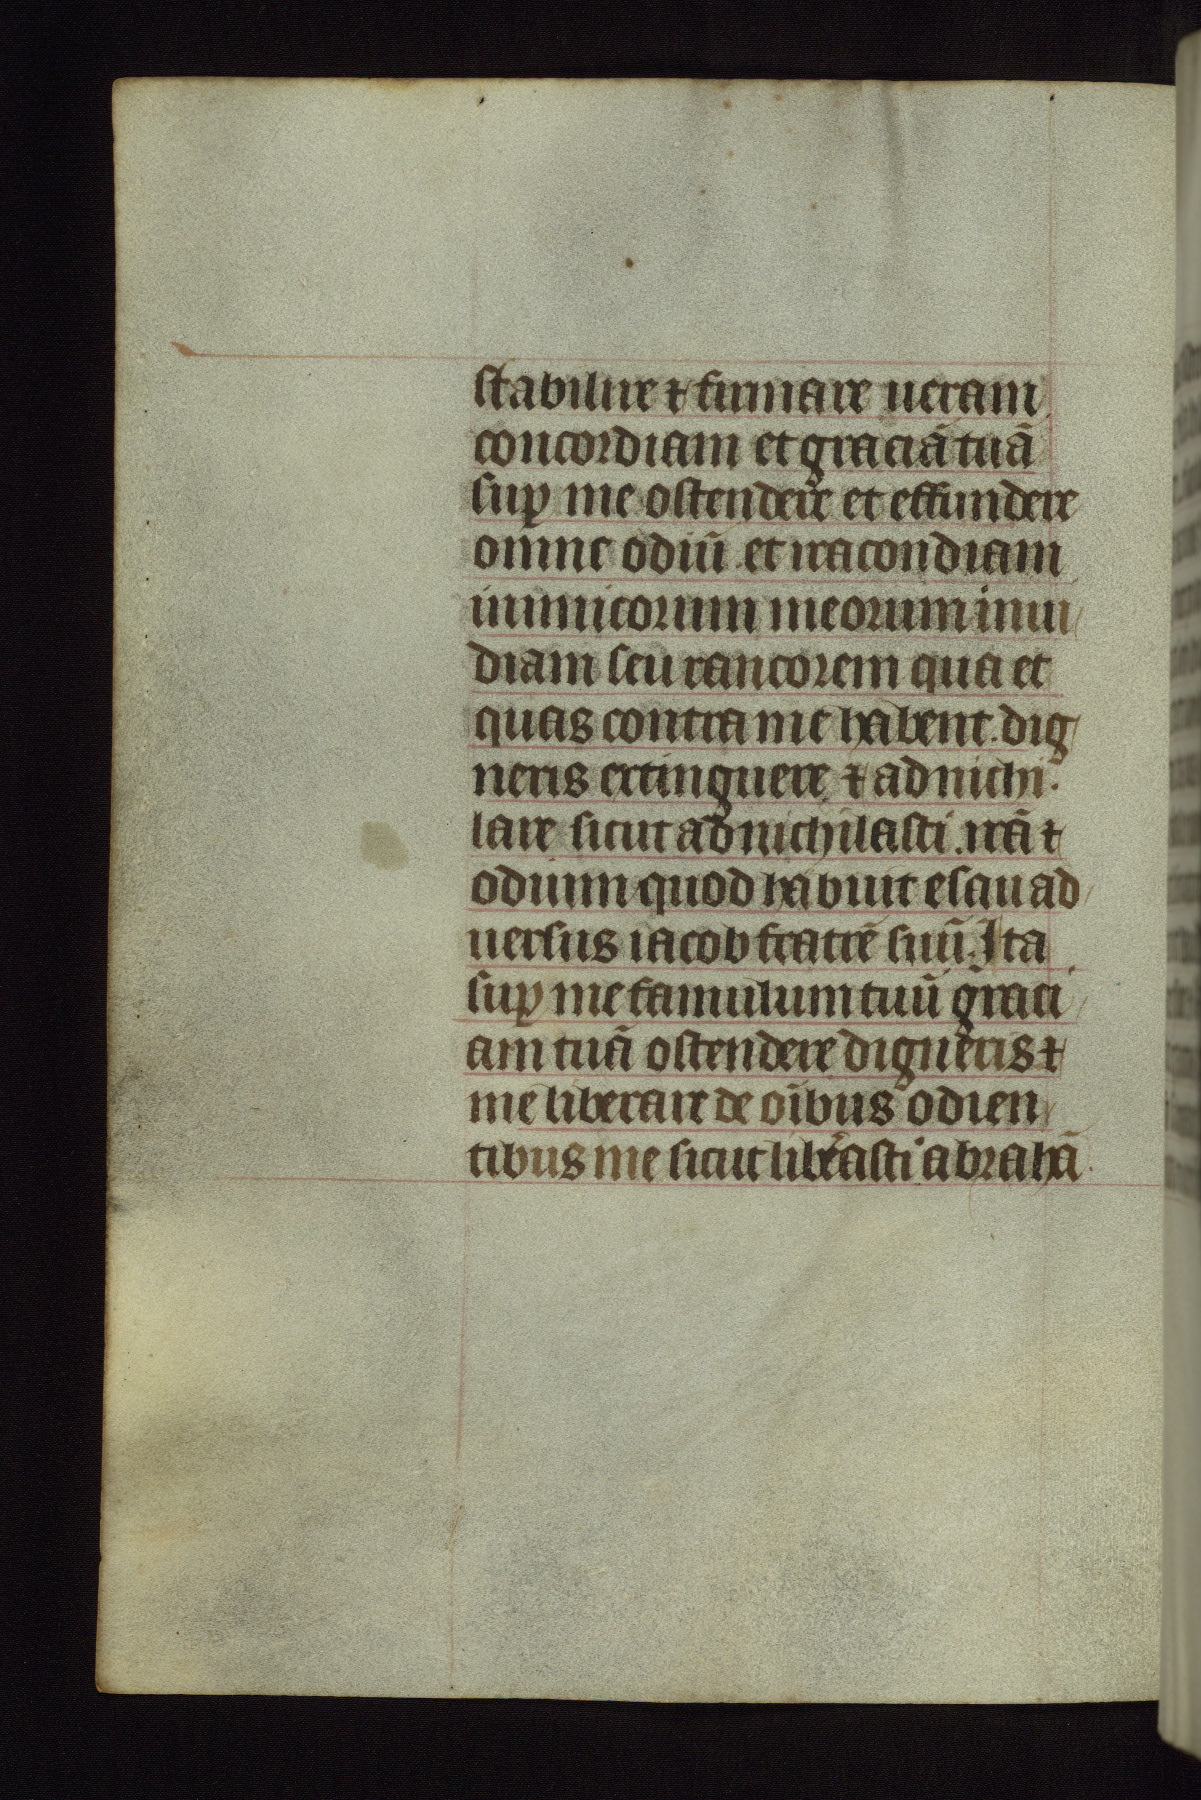 stabilire ⁊ firmare ueram
concordiam et graciā tuā
suꝑ me ostendere et effundere
omne odiū et iracondiam
inimicorum meorum inui
diam seu rancorem qua et
quas contra me habent. dig
neris extinguere ⁊ ad nichi
lare sicut ad nichilasti. irā ⁊
odium quod habuit esau ad
uersus iacob fratrē suū. Ita
suꝑ me famulum tuū graci
am tuā ostendere digneris ⁊
me liberare de oībus odien
tibus me sicut liberasti abrahā